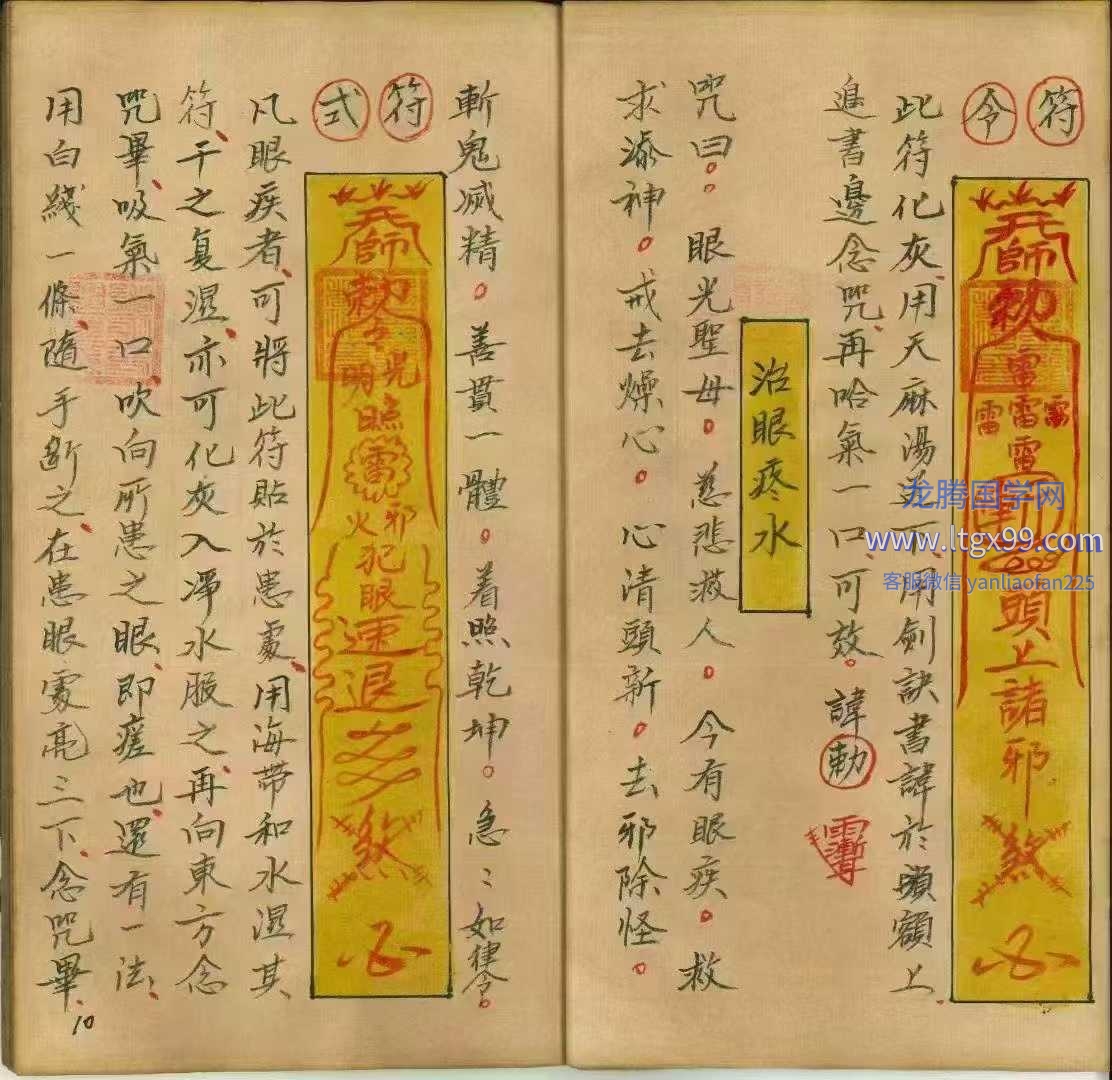 符令
天師敕
雷
雷雷雷
電
斬
頭上諸邪
煞
此符化灰、用天麻湯送下、用劍訣書諱於頭額上、
邊書邊念咒、再哈氣一口、可效。諱敕
治眼疼水
咒曰。眼光聖母。慈悲救人。今有眼疾。救
求添神。戒去燥心。心清頭新。去邪除怪。
斬鬼滅精。善貫一體。着照乾坤。急〻如律令。
符式
天師
敕令
光明
照
雷
邪火
犯眼速退
煞
凡眼疾者、可將此符貼於患處、用海带和水濕其
符、干之复濕、亦可化灰入淨水服之、再向東方念
咒畢、吸氣一口、吹向所患之眼、即瘥也、還有一法、
用白綫一條、隨手斷之、在患眼處亮三下、念咒畢、
10
龙腾国学网
www.ltgx99.com
客服微信 yanliaofan225